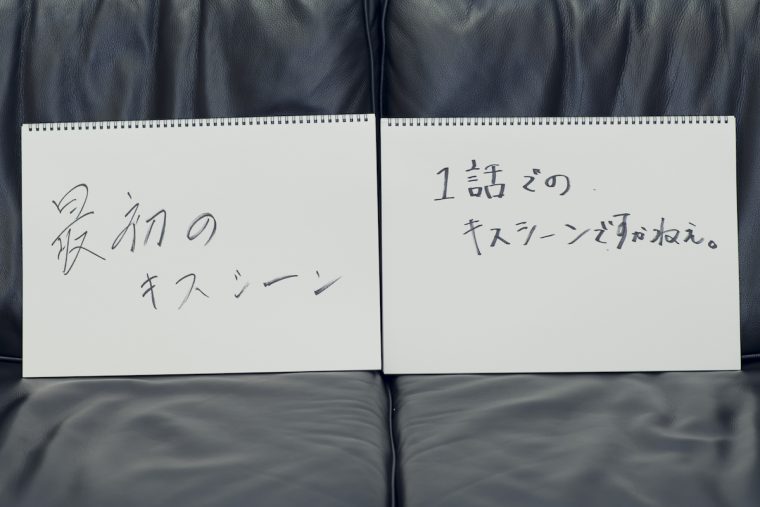 最初の
キスシーン
1話での
キスシーンですかねぇ。